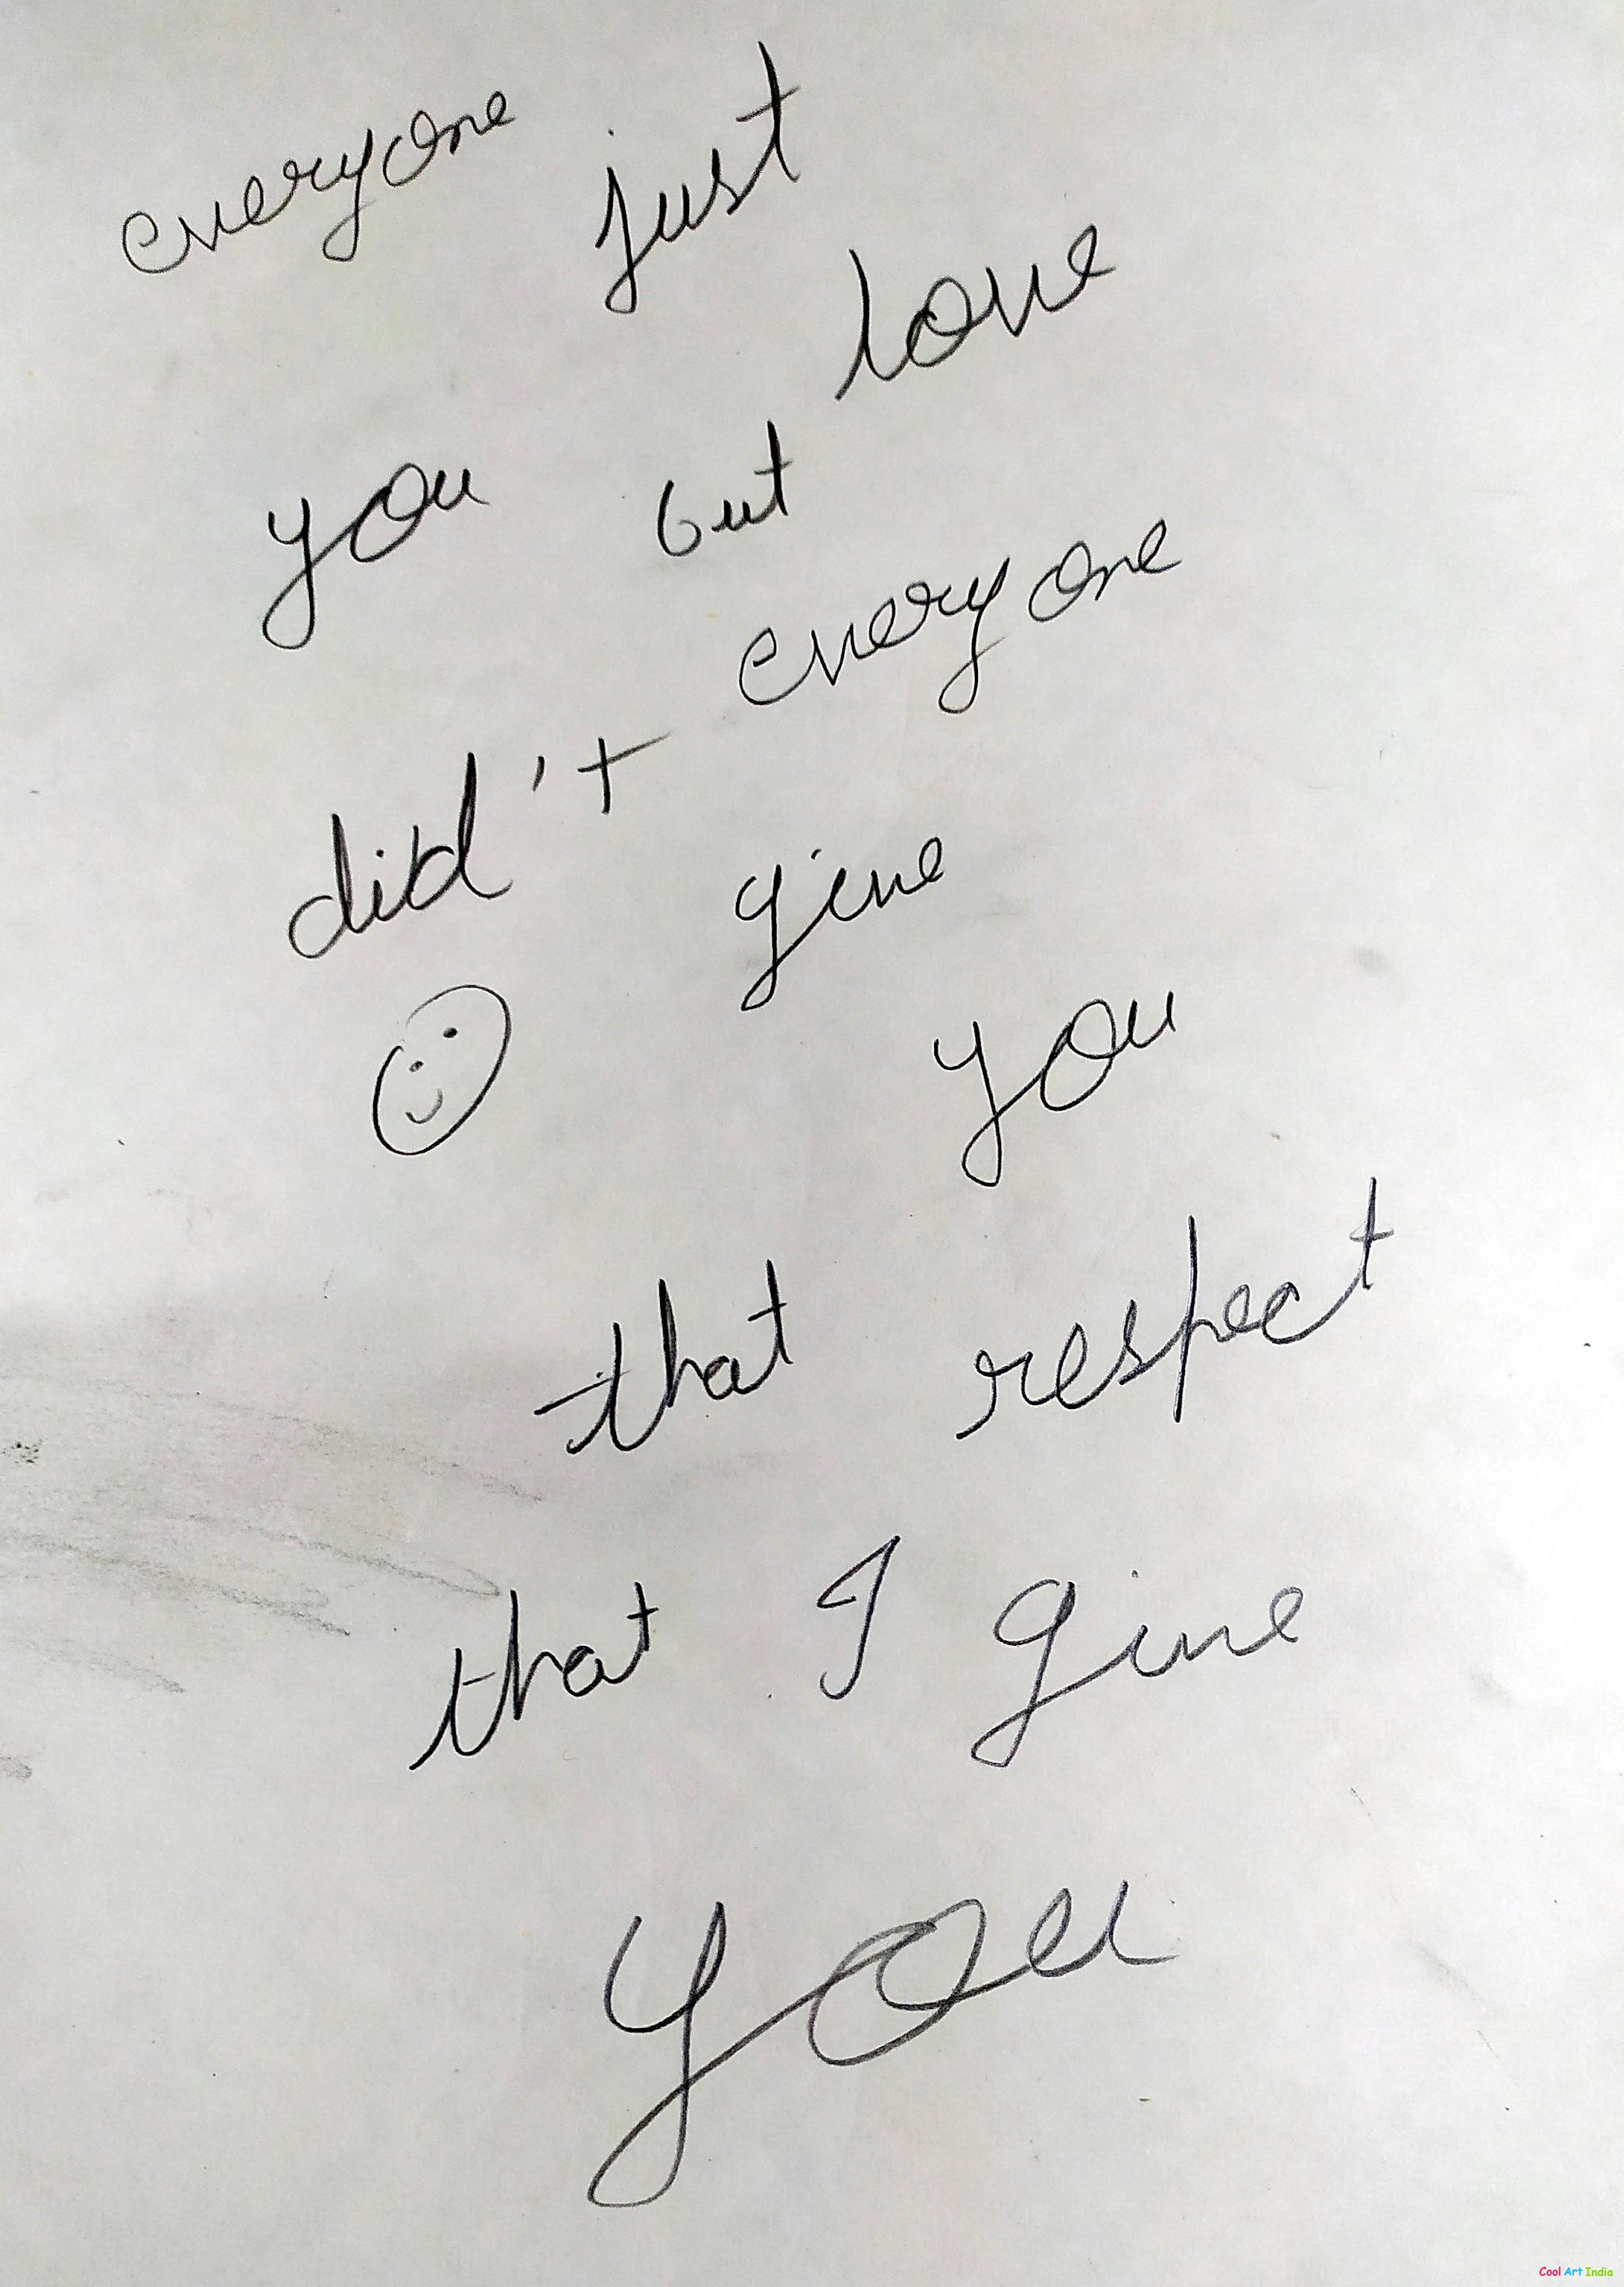 everyone just love
you but everyone
did't give you
that respect
that I give
you
Cool Art India